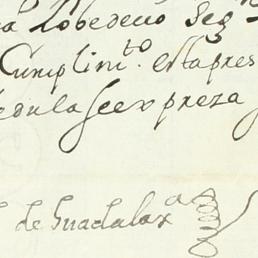 a Lobedecio Seg
Cumplim.to esta pres
edula se expreza
de Guadalax.a